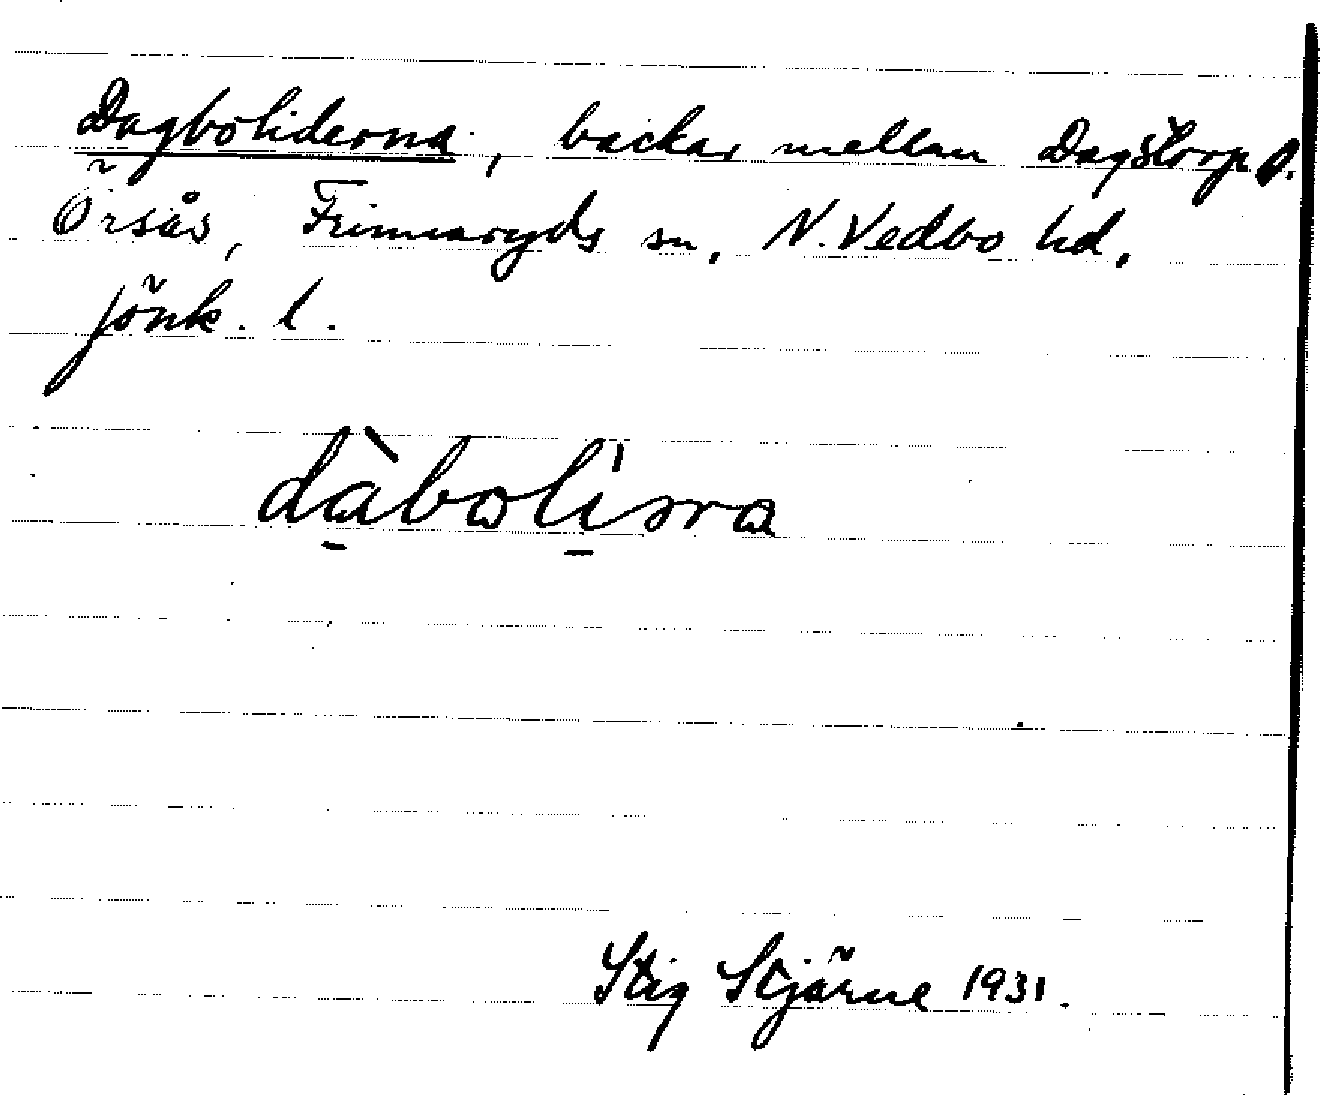 Dagboliderna, backar mellan Dagstorp o.
Örsås, Frinnaryds sn, N. Vedbo hd,
Jönk. l.
dàbolisra
Stig Stjärne 1931.